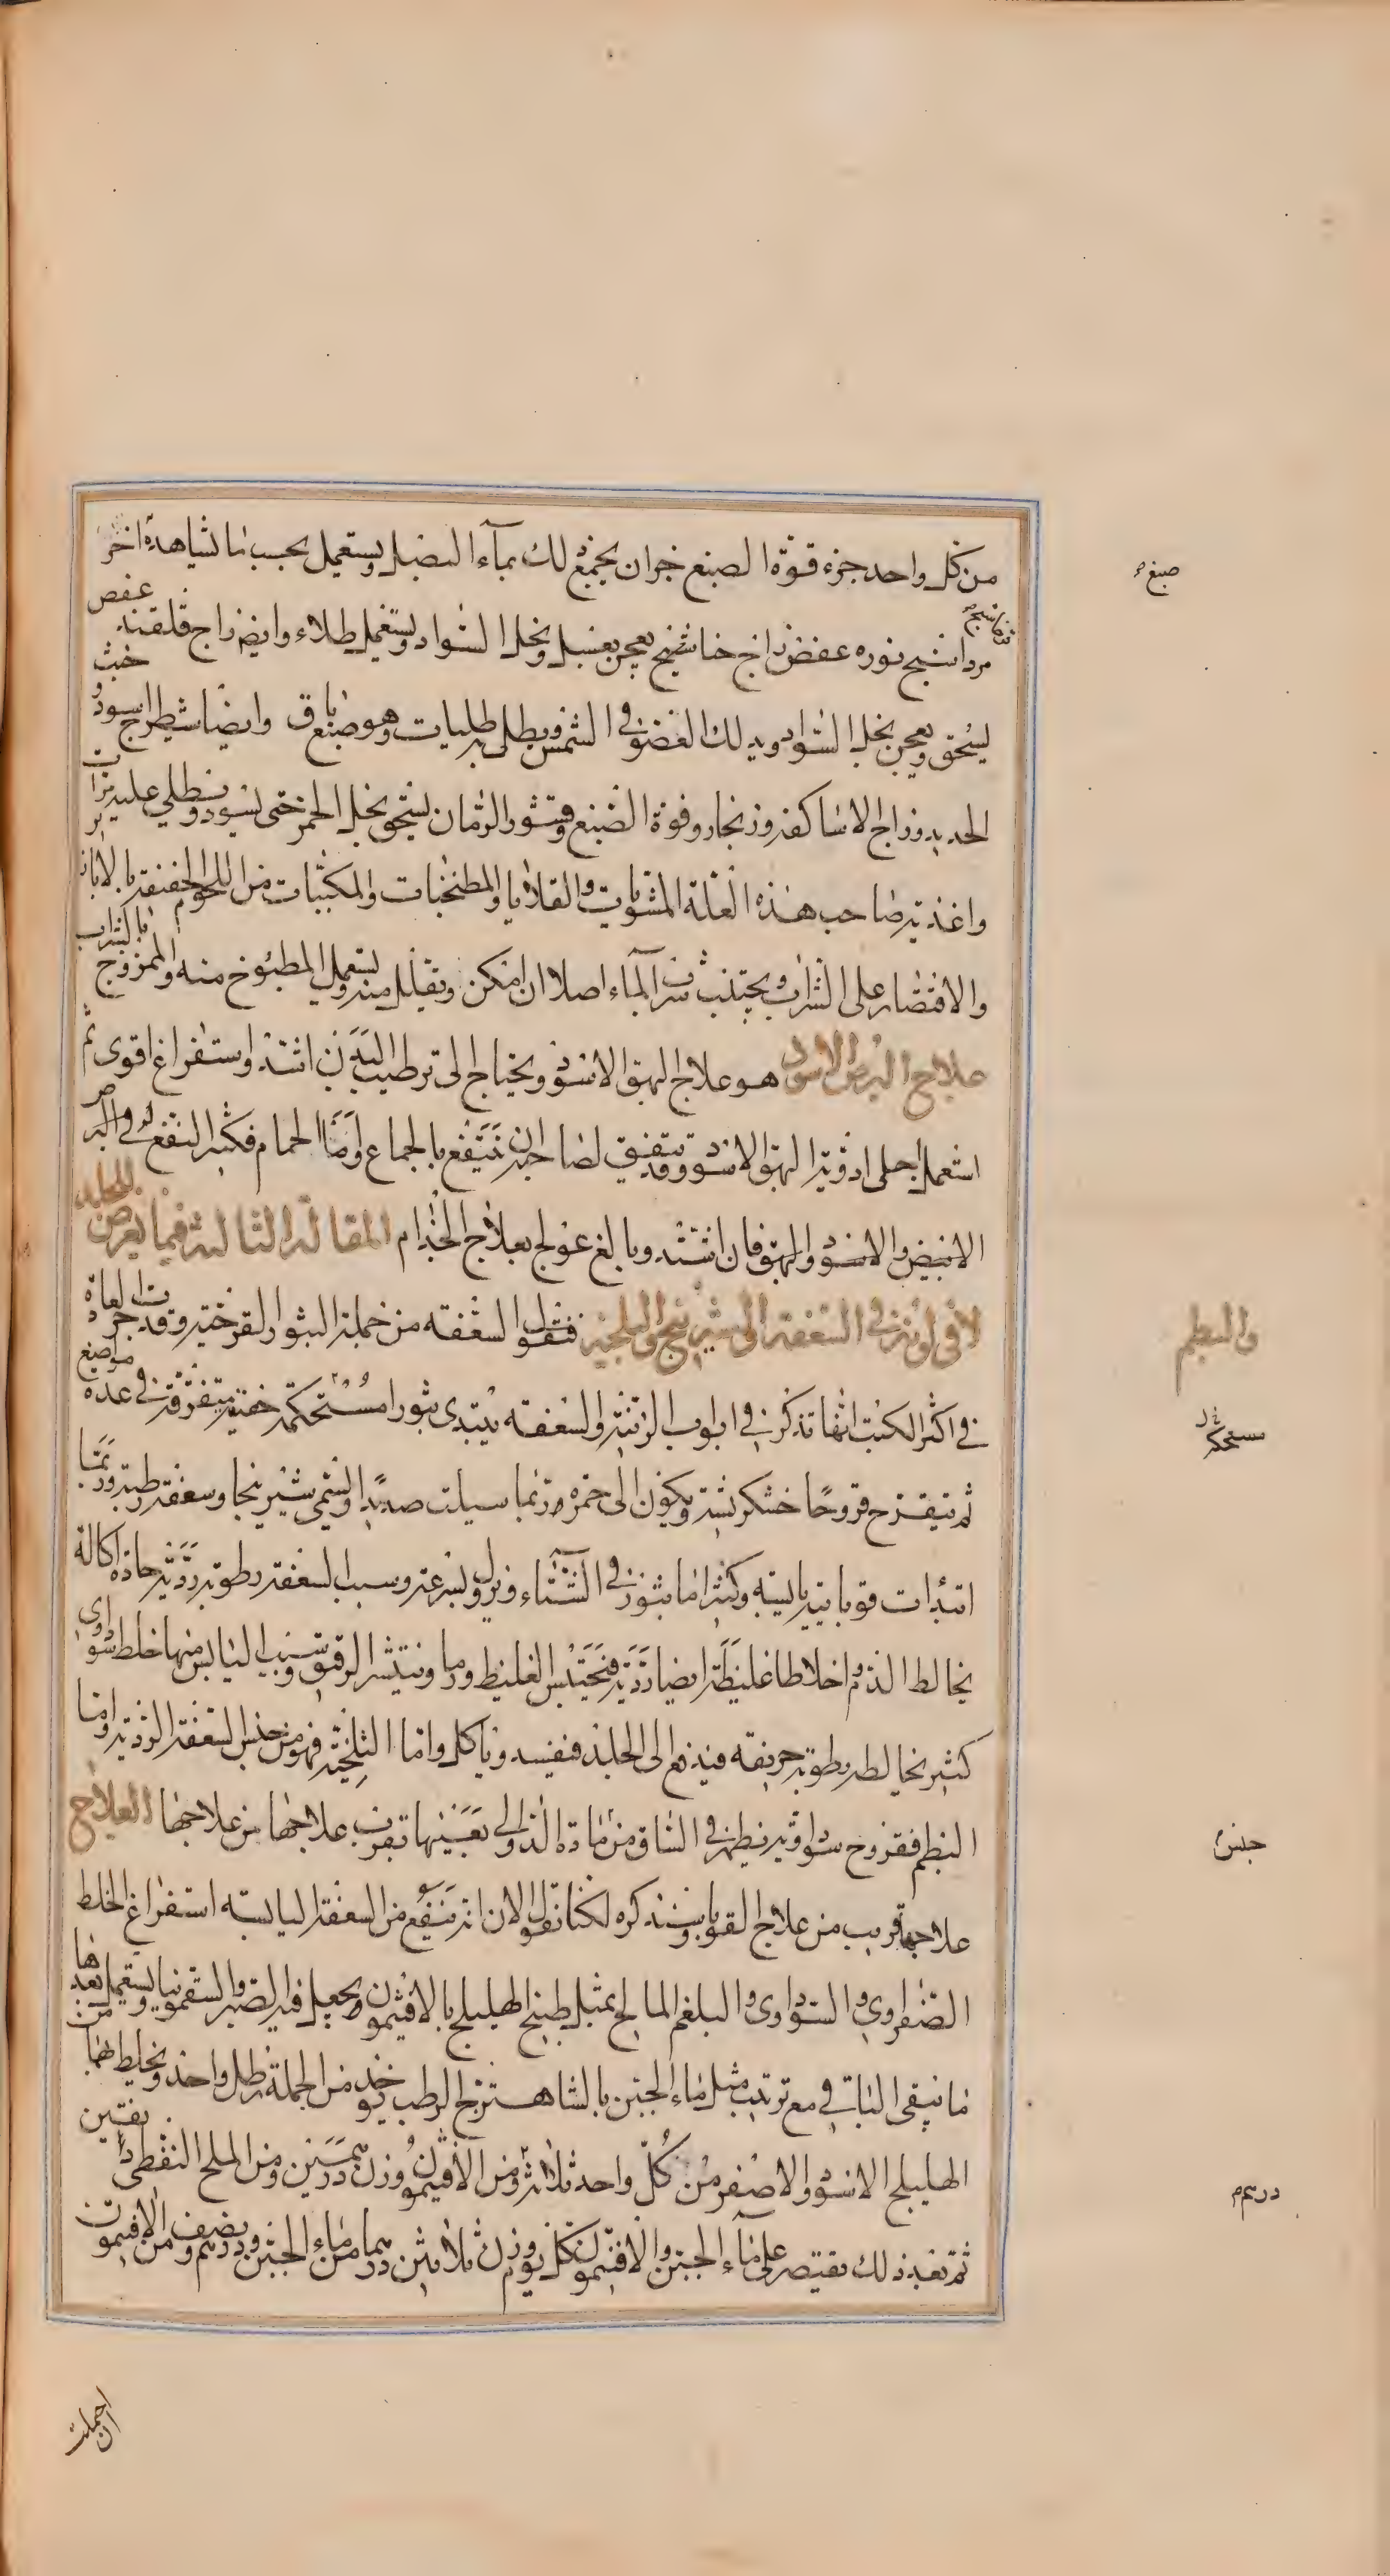 من كل واحد جزء قوة الصبغ جزان يجمع لك بماء البصل ويستعمل بحسب ما تشاهده اخر
مرداسنج نوره عفص زاج خاشنج يعجن بعسل وبخل السواد ويستعمل طلاء وايضا زاج قلقند عفص
يسحق ويعجن بخل السواد ويدلك العضو في الشمس ويطلى به طليات وهو صباغ باق وايضا شيطرج اسود و خبث
الحديد وزاج الاساكفه وزنجار وفوة الصبغ وقشور الرمان يسحق بخل الخمر حتى يسود ويطلي عليه مرات
واغذية صاحب هذه العلة المشويات والقلايا والمطنجنات والمكببات من اللحوم الخفيفة بالابازير
والاقتصار على الشراب ويجتنب شرب الماء اصلا ان امكن وتقليل منه ويستعمل المطبوخ منه والممزوج بالشراب
علاج البرص الاسود هو علاج البهق الاسود ويحتاج الى ترطيب البدن اشد واستفراغ اقوى ثم
استعمل اجلى ادوية البهق الاسود وقد يتفق لصاحبه ان ينتفع بالجماع واما الحمام فكثير النفع له وفي البرص
الابيض والاسود والبهق فان اشتد وبالغ عولج بعلاج الجذام المقالة الثالثة فيما يعرض للجلد
لا في لونه في السعفة والشيرينج والبلخية فنقول السعفه من جملة البثور القرحية وقد جرت العادة
في اكثر الكتب انها تذكر في ابواب الزينة والسعفه يبتدى بثورا مستحكمة خفية متفرقة في عدة مواضع
ثم تتقرح قروحا خشكريشية ويكون الى حمره وربما سيلت صديدا وتسمى شيرينجا وسعفة رطبة وربما
ابتدات قوبائية يابسة وكثيرا ما يثور في الشتاء ويزول بسرعة وسبب السعفة رطوبة ردية حادة اكالة
يخالط الدم اخلاطا غليظة ايضا ردية فيحتبس الغليظ ورما وينتشر الرقيق وسبب اليابس منها خلط سوداوي
كثير يخالطه رطوبة حريفه فيندفع الى الجلد فيفسد وياكل واما البلخية فهو من جنس السعفة الردية واما
البطم فقروح سوداوية يظهر في الساق من مادة الدوالي بعينها تقرب علاجها من علاجها العلاج
علاجها قريب من علاج القوبا وسنذكره لكنا نقول الان انه ينفع من السعفة اليابسه استفراغ الخلط
الصفراوي والسوداوى والبلغم المالح بمثل طبيخ الهليلج بالافتيمون ويجعل فيه الصبر والسقمونيا ويستعمل بعدها
ما ينقى الباقي مع ترتيب مثل ماء الجبن بالشاهترج الرطب يوخذ من الجملة رطل واحد ويخلط بهما من
الهليلج الاسود والاصفر من كل واحد ثلاثة ومن الافتيمون وزن درهمين ومن الملح النفطي دانقين
ثم بعد ذلك يقتصر على ماء الجبن والافتيمون لكل يوم وزن ثلاثين درهما من ماء الجبن ودرهم ونصف من الافتيمون
صبغ
والبطم
مستحكه
جنس
درهم